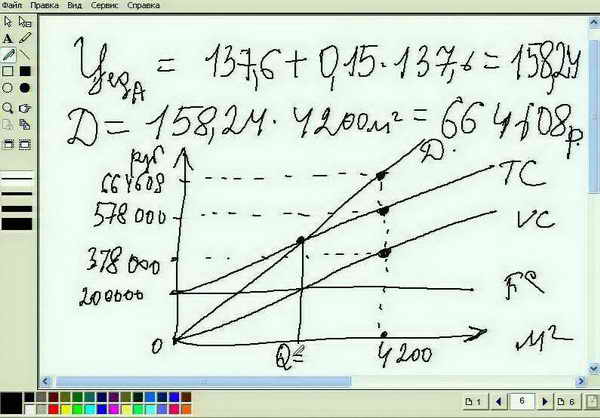 Файл Правка Вид Сервис Справка
Цед А = 137,6 + 0,15 · 137,6 = 158,24
Д = 158,24 · 4200 м² = 664 608 р.
руб
Д.
664608
TC
578 000
VC
378 000
FC
200000
0
Q=
4 200
м²
1
6
6